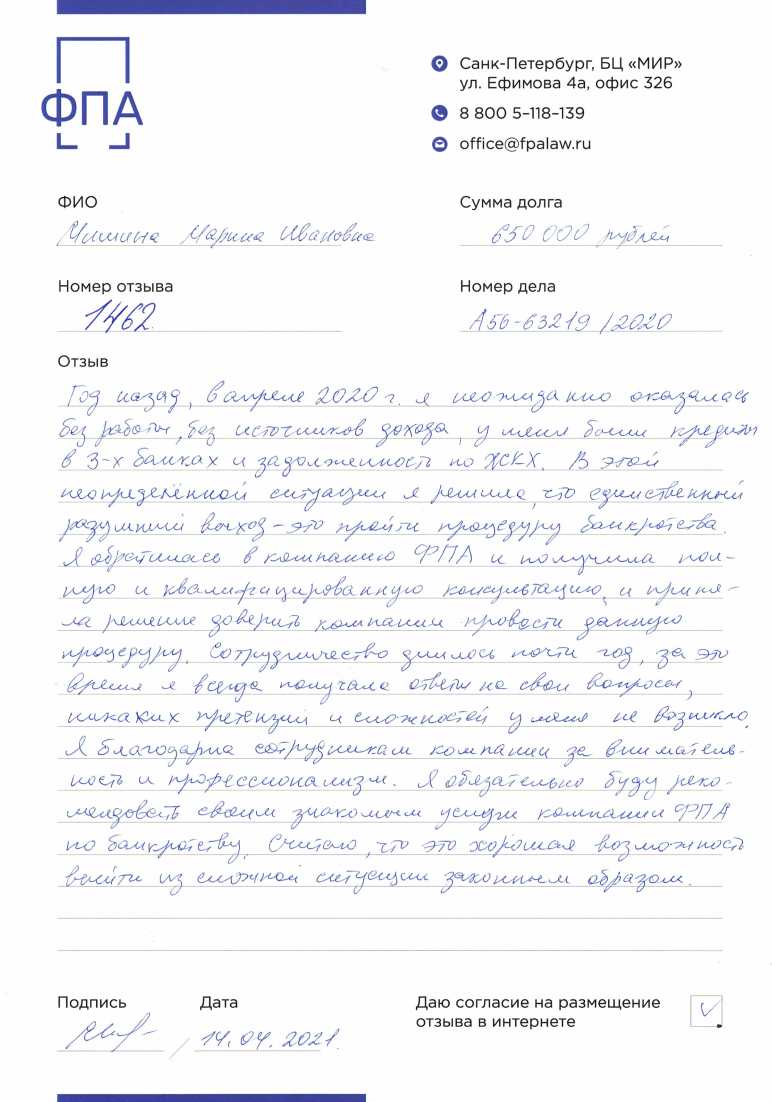 ФПА
Санк-Петербург, БЦ «МИР»
ул. Ефимова 4а, офис 326
8 800 5-118-139
office@fpalaw.ru
ФИО
Сумма долга
Марина Ивановна
650 000 рублей
Номер отзыва
Номер дела
1462
А56-63219/2020
Отзыв
Год назад, в апреле 2020 г. я неожиданно оказалась
без работы, без источников дохода, у меня были кредиты
в 3-х банках и задолженность по ЖСКХ. В этой
неопределённой ситуации я решила, что единственный
разумный выход - это пройти процедуру банкротства.
Я обратилась в компанию ФПА и получила пол-
ную и квалифицированную консультацию, и приня-
ла решение доверить компании провести данную
процедуру. Сотрудничество длилось почти год, за это
время я всегда получала ответы на свои вопросы,
никаких претензий и сложностей у меня не возникло.
Я благодарна сотрудникам компании за вниматель-
ность и профессионализм. Я обязательно буду реко-
мендовать своим знакомым услуги компании ФПА
по банкротству. Считаю, что это хорошая возможность
выйти из сложной ситуации законным образом.
Подпись
Дата
Даю согласие на размещение
отзыва в интернете
14.04.2021.